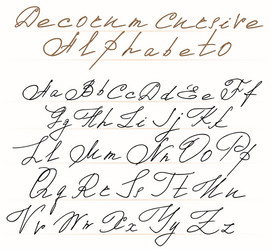 Decorum Cursive
Alphabeto
Aa Bb Cc Dd Ee Ff
Gg Hh Ii Jj Kk
Ll Mm Nn Oo Pp
Qq Rr Ss Tt Uu
Vv Ww Xx Yy Zz